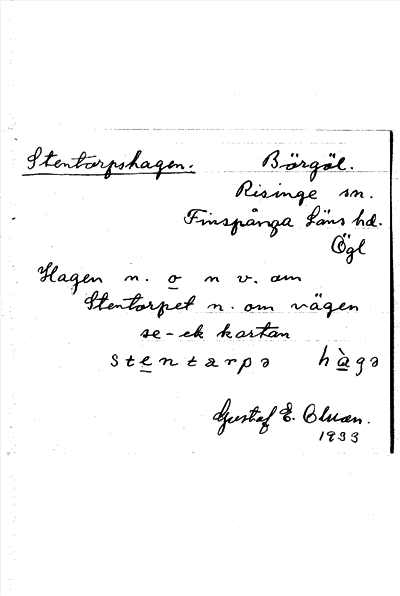 Stentorpshagen. Börgöl.
Risinge sn.
Finspånga Läns hd.
Ögl
Hagen n. o n v. om
Stentorpet n. om vägen
se-ek kartan
stentarpə hàgə
Gustaf E.
1933